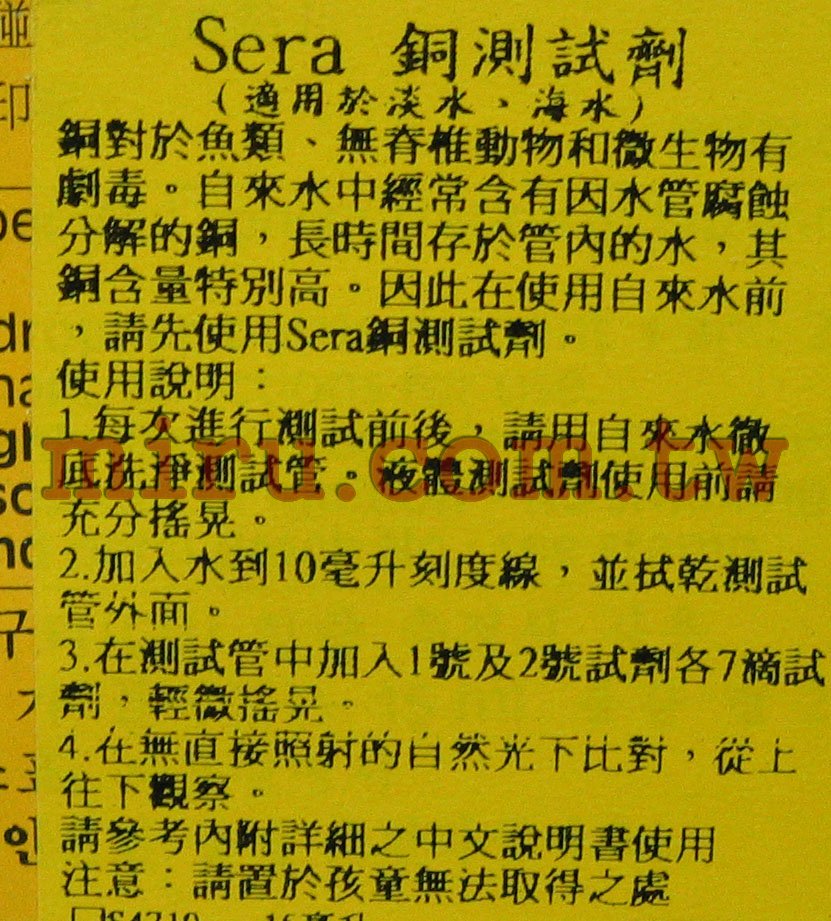 Sera 銅測試劑
(適用於淡水、海水)
銅對於魚類、無脊椎動物和微生物有
劇毒。自來水中經常含有因水管腐蝕
分解的銅，長時間存於管內的水，其
銅含量特別高。因此在使用自來水前
，請先使用Sera銅測試劑。
使用說明：
1.每次進行測試前後，請用自來水徹
底洗淨測試管。液體測試劑使用前請
充分搖晃。
miru.com.tw
2.加入水到10毫升刻度線，並拭乾測試
管外面。
3.在測試管中加入1號及2號試劑各7滴試
劑，輕微搖晃。
4.在無直接照射的自然光下比對，從上
往下觀察。
請參考內附詳細之中文說明書使用
注意：請置於孩童無法取得之處